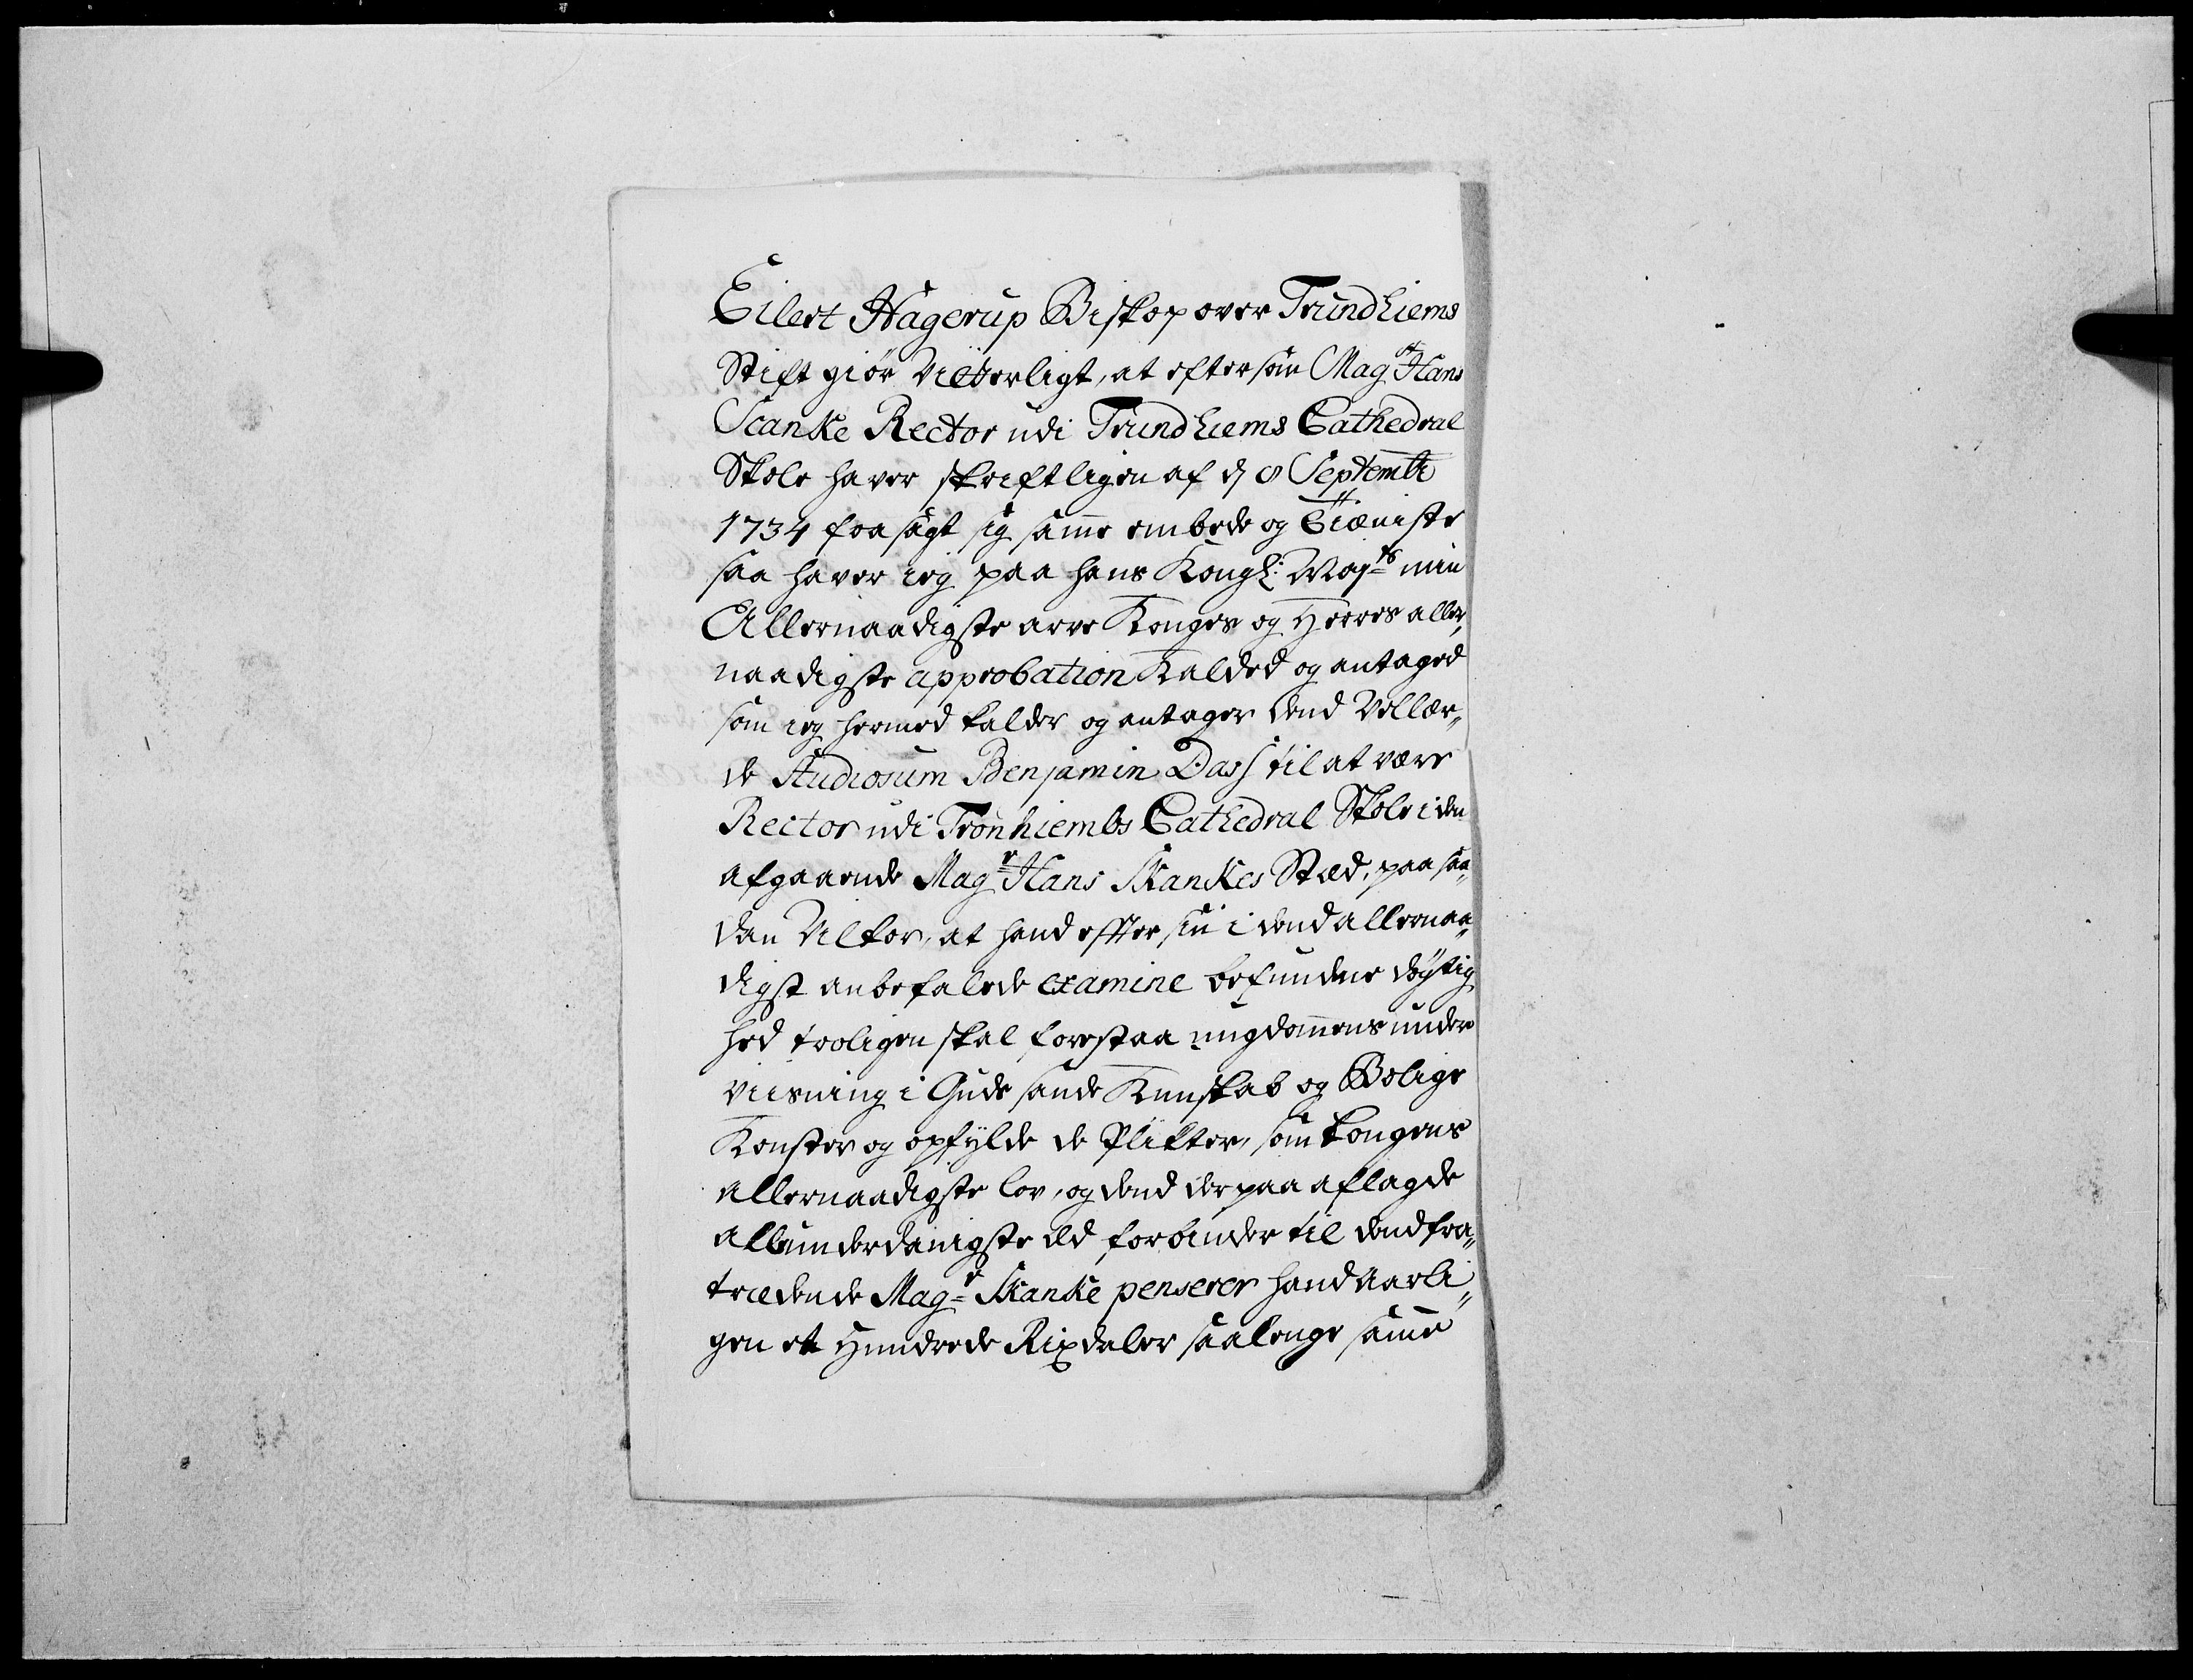 Eilert Hagerup Biskop over Trundhiems
Stift giør Vitterligt, at eftersom Magr Hans
Scanke Rector udi Trundhiems Cathedral
Skole haver skriftligen af d 8 Septembr
1734 fra sagt sig same embede og Tiæniste
saa haver ieg paa hans Kongl: Majts min
Allernaadigste arve Konges og Herres aller„
naadigste approbation Kalded og antaged
som ieg hermed kalder og antager dend Vellær„
de Studiosum Benjamin Dass til at være
Rector udi Tronhiembs Cathedral Skole i den
afgaaende Magr Hans Skankes Sted, paa saa„
dan Vilkor, at hand effter sin i dend allernaa„
digst anbefalede examine befundne døgtig
hed troligen skal forestaa ungdomens under
viisning i Guds sande Kunskab og Bolige
Konster og opfylde de Plikter, som kongens
allernaadigste lov, og dend derpaa aflagde
allerunderdanigste Eed forbinder til dend fra„
trædende Magr Skanke penserer hand aarli„
gen et Hundrede Rixdaler saalenge same